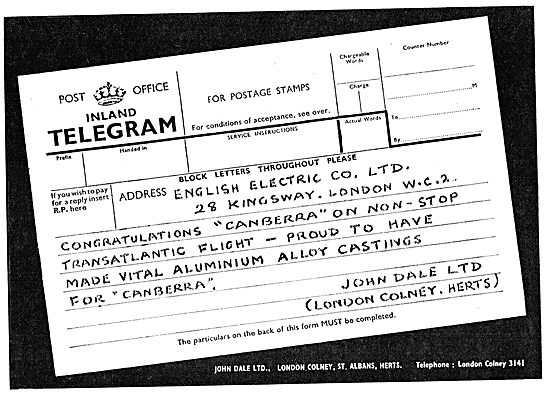 POST OFFICE
INLAND
TELEGRAM
FOR POSTAGE STAMPS
For conditions of acceptance, see over.
Chargeable Words
Charge
Actual Words
Counter Number
M
To
By
Prefix
Handed in
SERVICE INSTRUCTIONS
BLOCK LETTERS THROUGHOUT PLEASE
If you wish to pay
for a reply insert
R.P. here
ADDRESS ENGLISH ELECTRIC CO. LTD.
28 KINGSWAY. LONDON W.C.2.
CONGRATULATIONS "CANBERRA" ON NON-STOP
TRANSATLANTIC FLIGHT - PROUD TO HAVE
MADE VITAL ALUMINIUM ALLOY CASTINGS
FOR "CANBERRA".
JOHN DALE LTD
(LONDON COLNEY. HERTS)
The particulars on the back of this form MUST be completed.
JOHN DALE LTD., LONDON COLNEY, ST. ALBANS, HERTS. Telephone : London Colney 3141